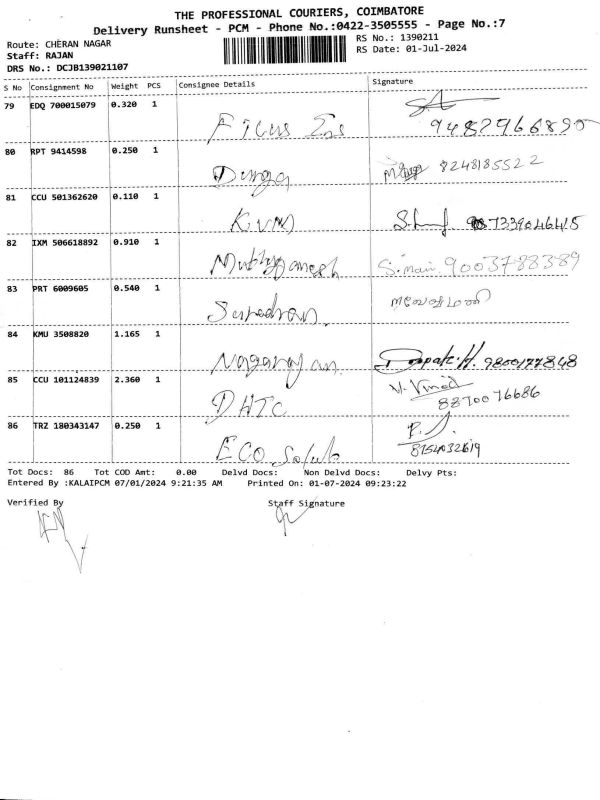 THE PROFESSIONAL COURIERS, COIMBATORE
Delivery Runsheet - PCM - Phone No.:0422-3505555 - Page No.:7
Route: CHERAN NAGAR RS No.: 1390211
Staff: RAJAN RS Date: 01-Jul-2024
DRS No.: DCJB139021107
S No Consignment No Weight PCS Consignee Details Signature
79 EDQ 700015079 0.320 1
Ficus Ins
80 RPT 9414598 0.250 1 8248185522
Durga
81 CCU 501362620 0.110 1
KVM 7339046415
82 IXM 506618892 0.910 1
S. Mani 9003788389
83 PRT 6009605 0.540 1
84 KMU 3508820 1.165 1
Nagarajan. 9800177848
85 CCU 101124839 2.360 1 V. Vinod
DHTC 8870076686
86 TRZ 180343147 0.250 1
ECO
Tot Docs: 86 Tot COD Amt: 0.00 Delvd Docs: Non Delvd Docs: Delvy Pts:
Entered By :KALAIPCM 07/01/2024 9:21:35 AM Printed On: 01-07-2024 09:23:22
Verified By Staff Signature